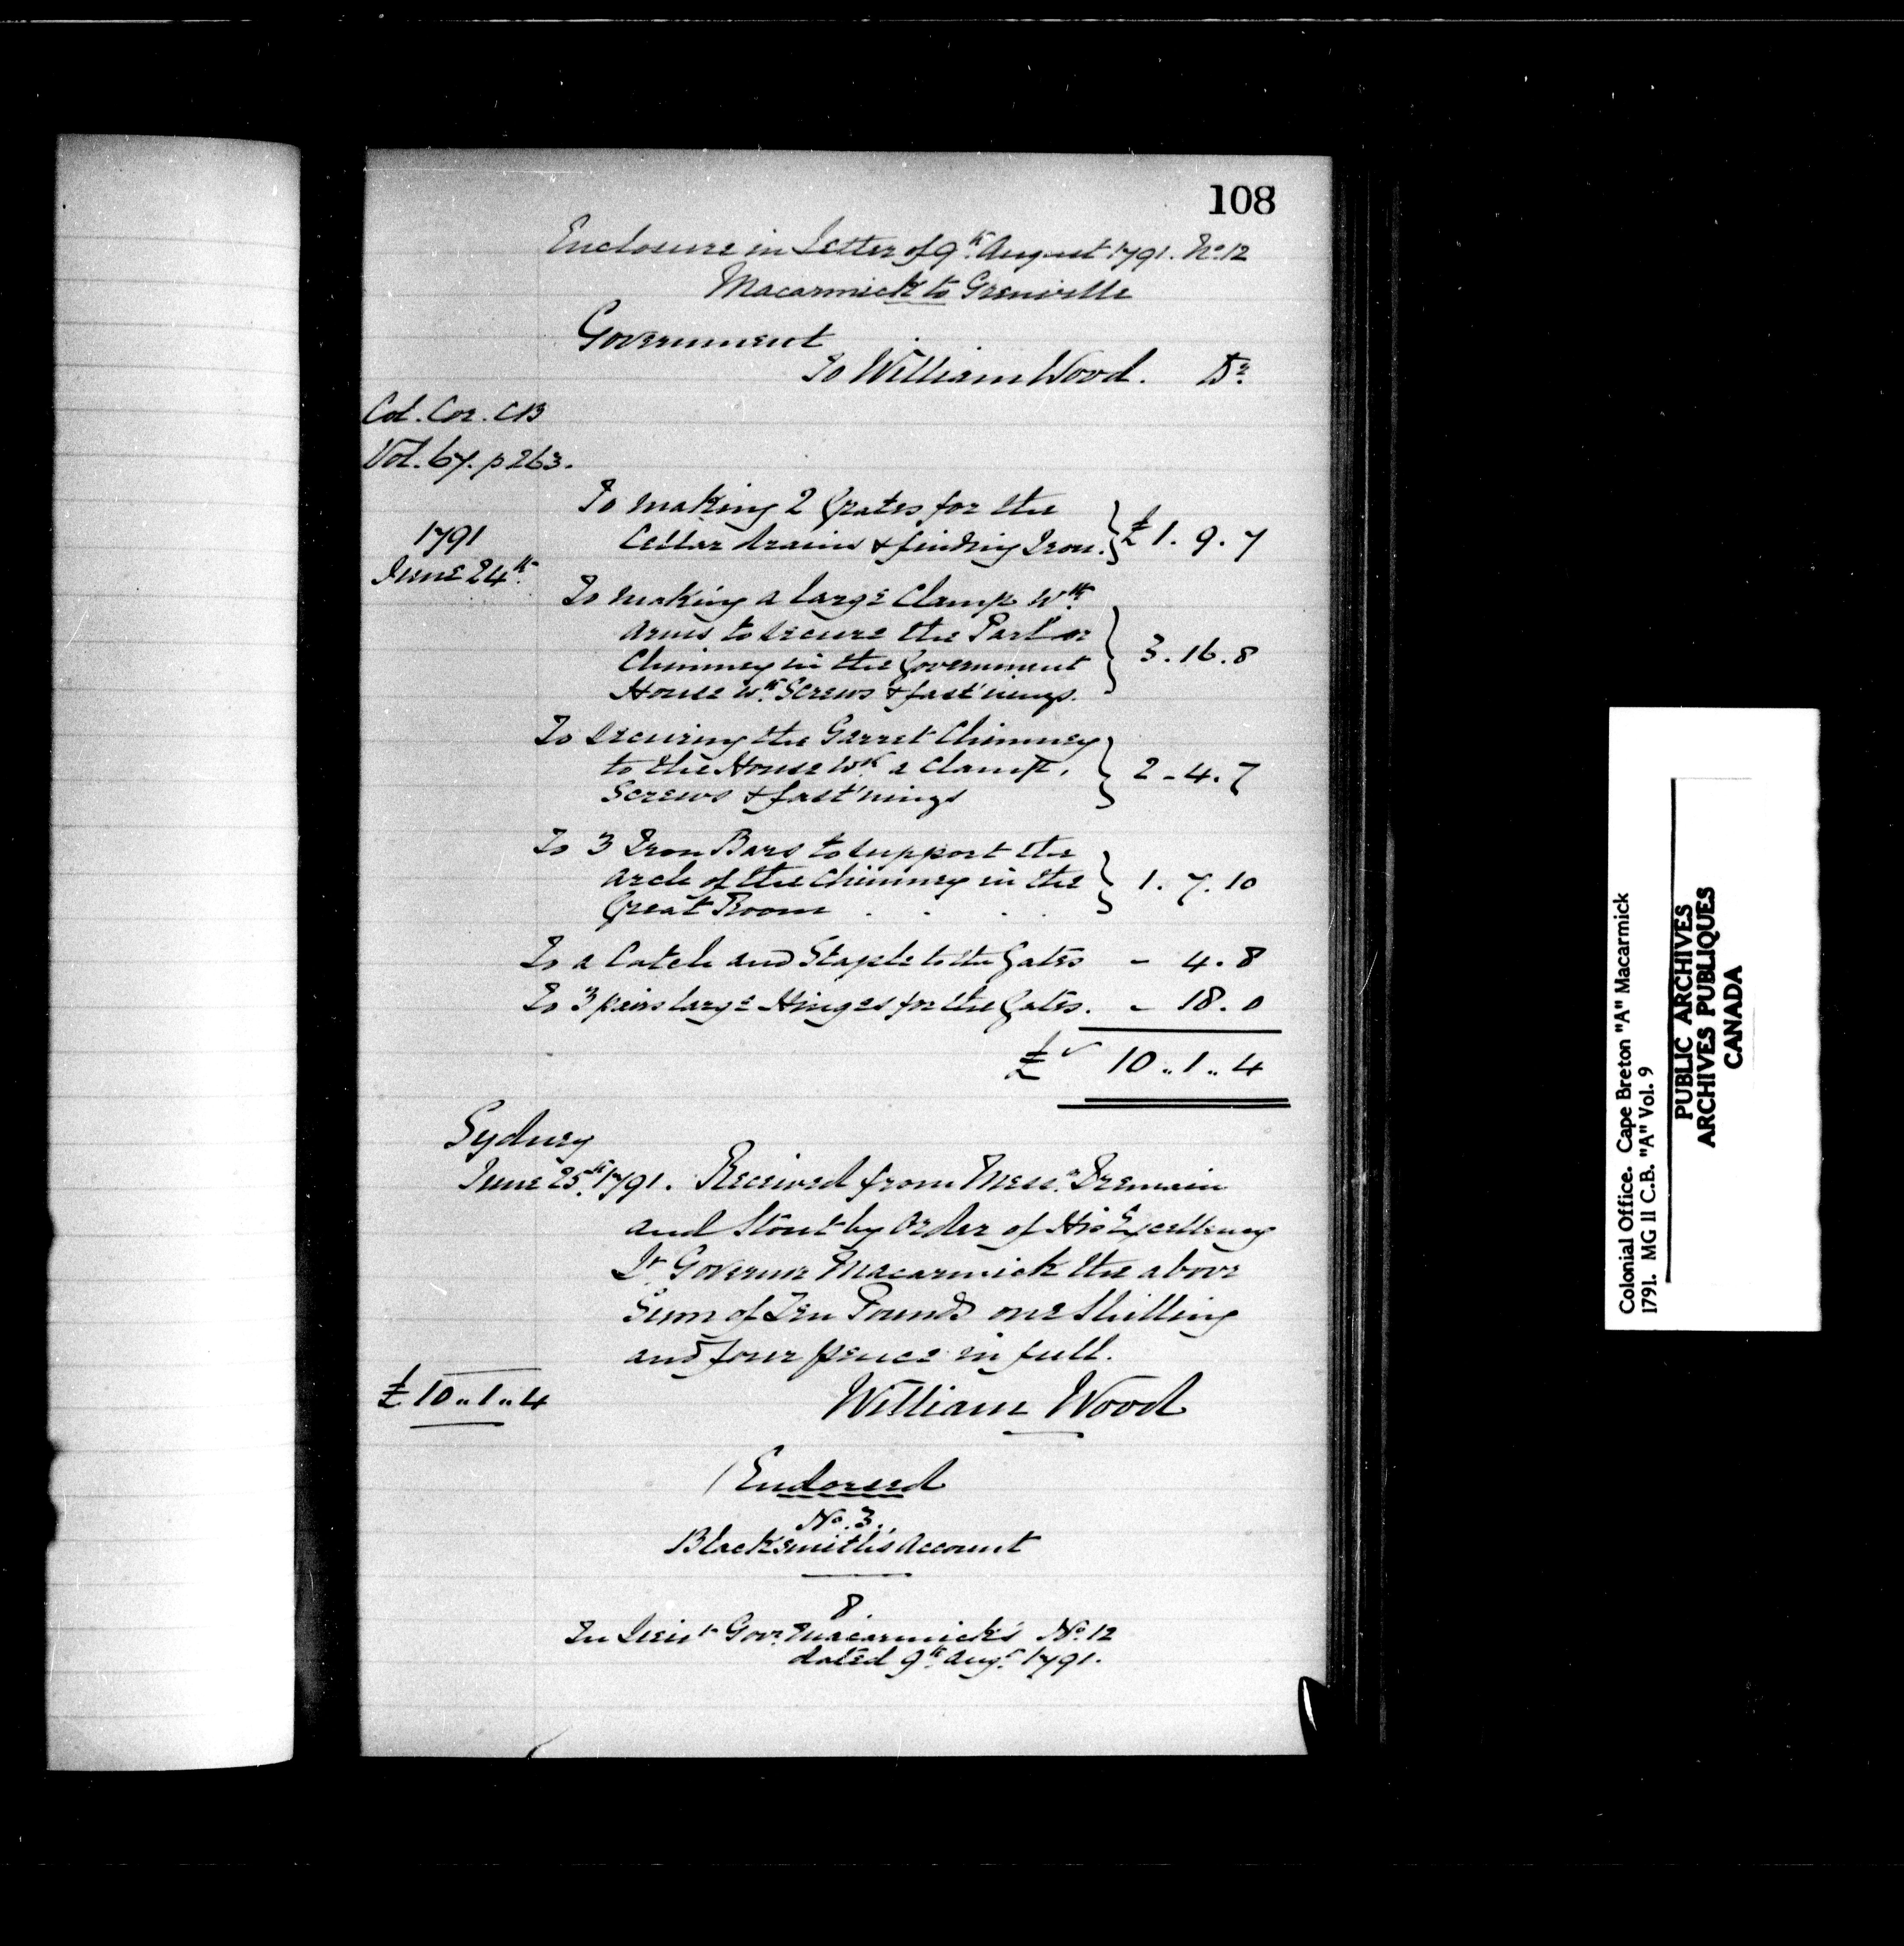 108
Enclosure in Letter of 9th August 1791. No 12
Macarmick to Grenville
Government
To William Wood. Dr.
Col. Cor. C B
Vol. 67. p 263.
To making 2 Grates for the
Cellar drains & finding Iron. } £ 1. 9. 7
1791
June 24th.
To making a large Clamp wth.
arms to secure the Parlor
Chimney in the Government } 3. 16. 8
House wth. Screws & fast'nings.
To securing the Garret Chimney
to the House wth. a Clamp, } 2 - 4. 7
Screws & fast'nings
To 3 Iron Bars to support the
arch of the Chimney in the } 1. 7. 10
Great Room . . . .
To a Catch and Staple to the Gates - 4. 8
To 3 pairs large Hinges for the Gates. - 18. 0
£ 10 .. 1 .. 4
Sydney
June 25th. 1791. Received from Messrs. Tremain
and Stout by order of His Excellency
Lt. Governor Macarmick the above
Sum of Ten Pounds one Shilling
and four pence in full.
£ 10 .. 1 .. 4 William Wood
(Endorsed
No. 3.
Blacksmith's Account
8.
In Lieut Govr. Macarmick's No. 12
dated 9th. Augt. 1791.
Colonial Office. Cape Breton "A" Macarmick
1791. MG 11 C.B. "A" Vol. 9
PUBLIC ARCHIVES
ARCHIVES PUBLIQUES
CANADA